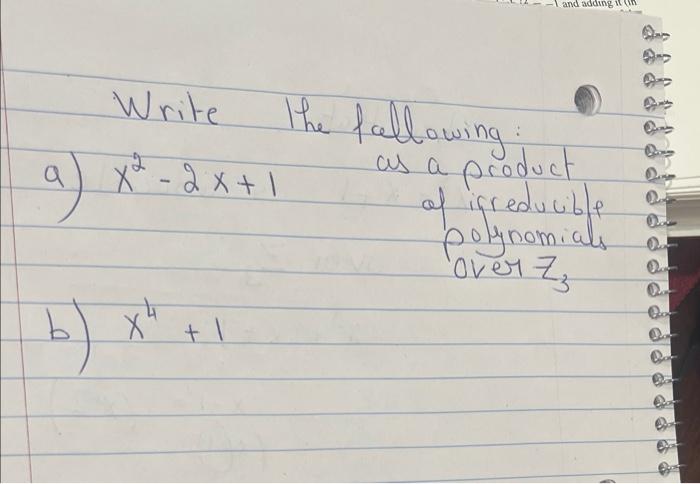 -1 and adding it (in
Write the following:
as a product
of irreducible
polynomials
over Z₃
a) x² - 2x + 1
b) x⁴ + 1